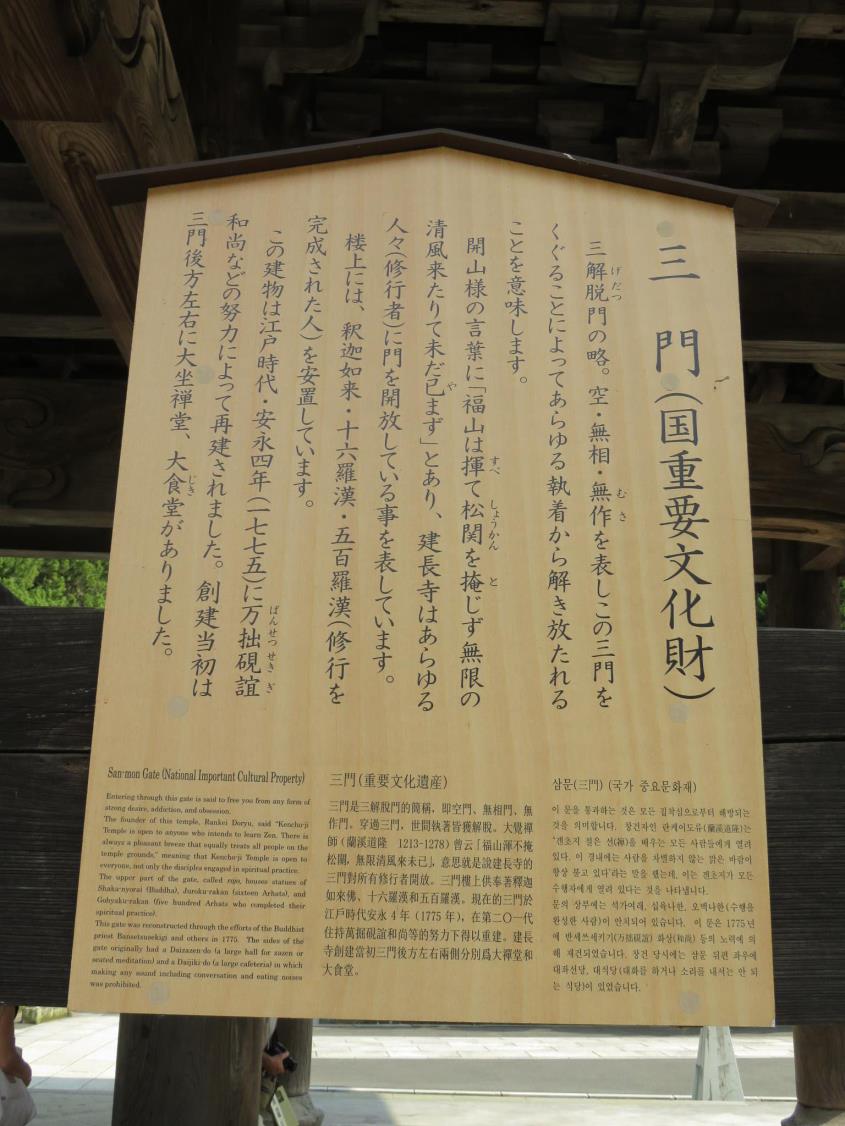 三　門(国重要文化財)
三解脱門の略。空・無相・無作を表しこの三門を
げだつ
むさ
くぐることによってあらゆる執着から解き放たれる
ことを意味します。
開山様の言葉に「福山は揮て松関を掩じず無限の
すべ
しょうかん
と
清風来たりて未だ已まず」とあり、建長寺はあらゆる
や
人々(修行者)に門を開放している事を表しています。
楼上には、釈迦如来・十六羅漢・五百羅漢(修行を
完成された人)を安置しています。
この建物は江戸時代・安永四年(一七七五)に万拙硯誼
ばんせつせきぎ
和尚などの努力によって再建されました。創建当初は
三門後方左右に大坐禅堂、大食堂がありました。
じき
San-mon Gate (National Important Cultural Property)
Entering through this gate is said to free you from any form of
strong desire, addiction, and obsession.
The founder of this temple, Rankei Doryu, said "Kencho-ji
Temple is open to anyone who intends to learn Zen. There is
always a pleasant breeze that equally treats all people on the
temple grounds," meaning that Kencho-ji Temple is open to
everyone, not only the disciples engaged in spiritual practice.
The upper part of the gate, called rojo, houses statues of
Shaka-nyorai (Buddha), Juroku-rakan (sixteen Arhats), and
Gohyaku-rakan (five hundred Arhats who completed their
spiritual practice).
This gate was reconstructed through the efforts of the Buddhist
priest Bansetsusekigi and others in 1775. The sides of the
gate originally had a Daizazen-do (a large hall for zazen or
seated meditation) and a Daijiki-do (a large cafeteria) in which
making any sound including conversation and eating noises
was prohibited.
三門(重要文化遺産)
三門是三解脱門的簡稱，即空門、無相門、無
作門。穿過三門，世間執著皆獲解脫。大覺禪
師（蘭溪道隆　1213-1278）曾云「福山渾不掩
松關，無限清風來未已」，意思就是說建長寺的
三門對所有修行者開放。三門樓上供奉著釋迦
如來佛、十六羅漢和五百羅漢。現在的三門於
江戶時代安永4年（1775年），在第二〇一代
住持萬拙硯誼和尚等的努力下得以重建。建長
寺創建當初三門後方左右兩側分別爲大禪堂和
大食堂。
삼문(三門) (국가 중요문화재)
이 문을 통과하는 것은 모든 집착심으로부터 해방되는
것을 의미합니다. 창건자인 란케이도류(蘭溪道隆)는
"겐초지 절은 선(禪)을 배우는 모든 사람들에게 열려
있다. 이 경내에는 사람을 차별하지 않는 맑은 바람이
항상 불고 있다"라는 말을 했는데, 이는 겐초지가 모든
수행자에게 열려 있다는 것을 나타냅니다.
문의 상부에는 석가여래, 십육나한, 오백나한(수행을
완성한 사람)이 안치되어 있습니다. 이 문은 1775년
에 반세쓰세키기(万拙硯誼) 화상(和尚) 등의 노력에 의
해 재건되었습니다. 창건 당시에는 삼문 뒤편 좌우에
대좌선당, 대식당(대화를 하거나 소리를 내서는 안 되
는 식당)이 있었습니다.